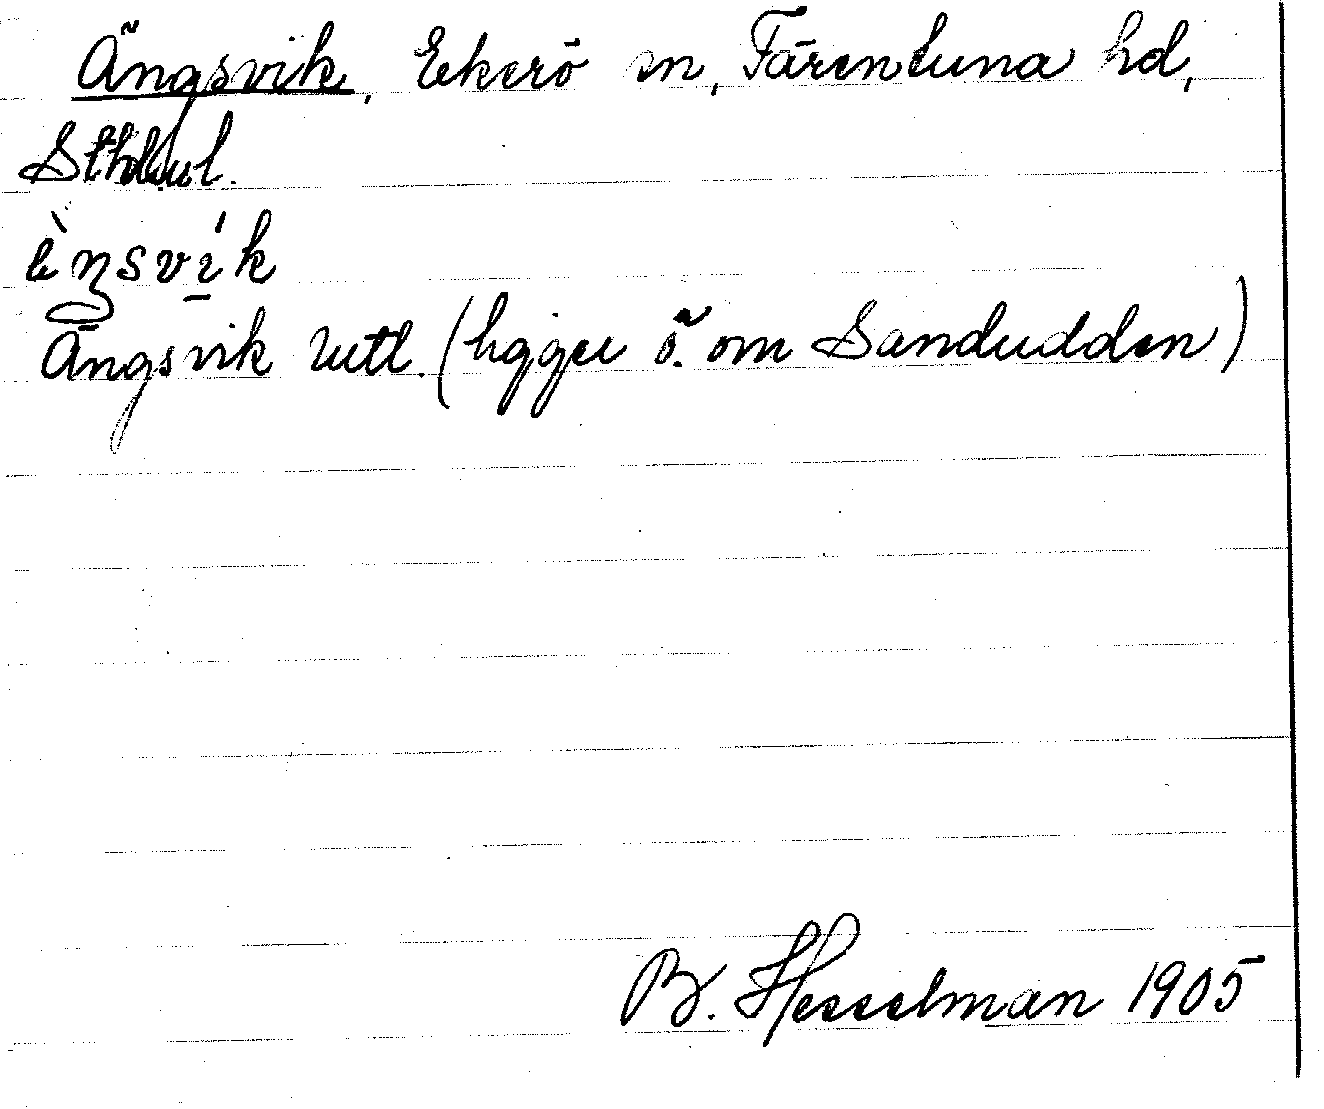 Ängsvik, Ekerö sn, Färentuna hd,
Sthlms l.
ängsvik
Ängsvik (ligger ö. om Sandudden)
B. Hesselman 1905